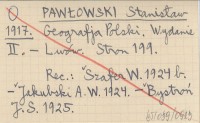 PAWŁOWSKI Stanisław
1917. Geografja Polski. Wydanie
II. – Lwów. Stron 199.
Rec.: Szafer W. 1924 b.
– Jakubski A. W. 1924. – Bystroń
J. S. 1925.